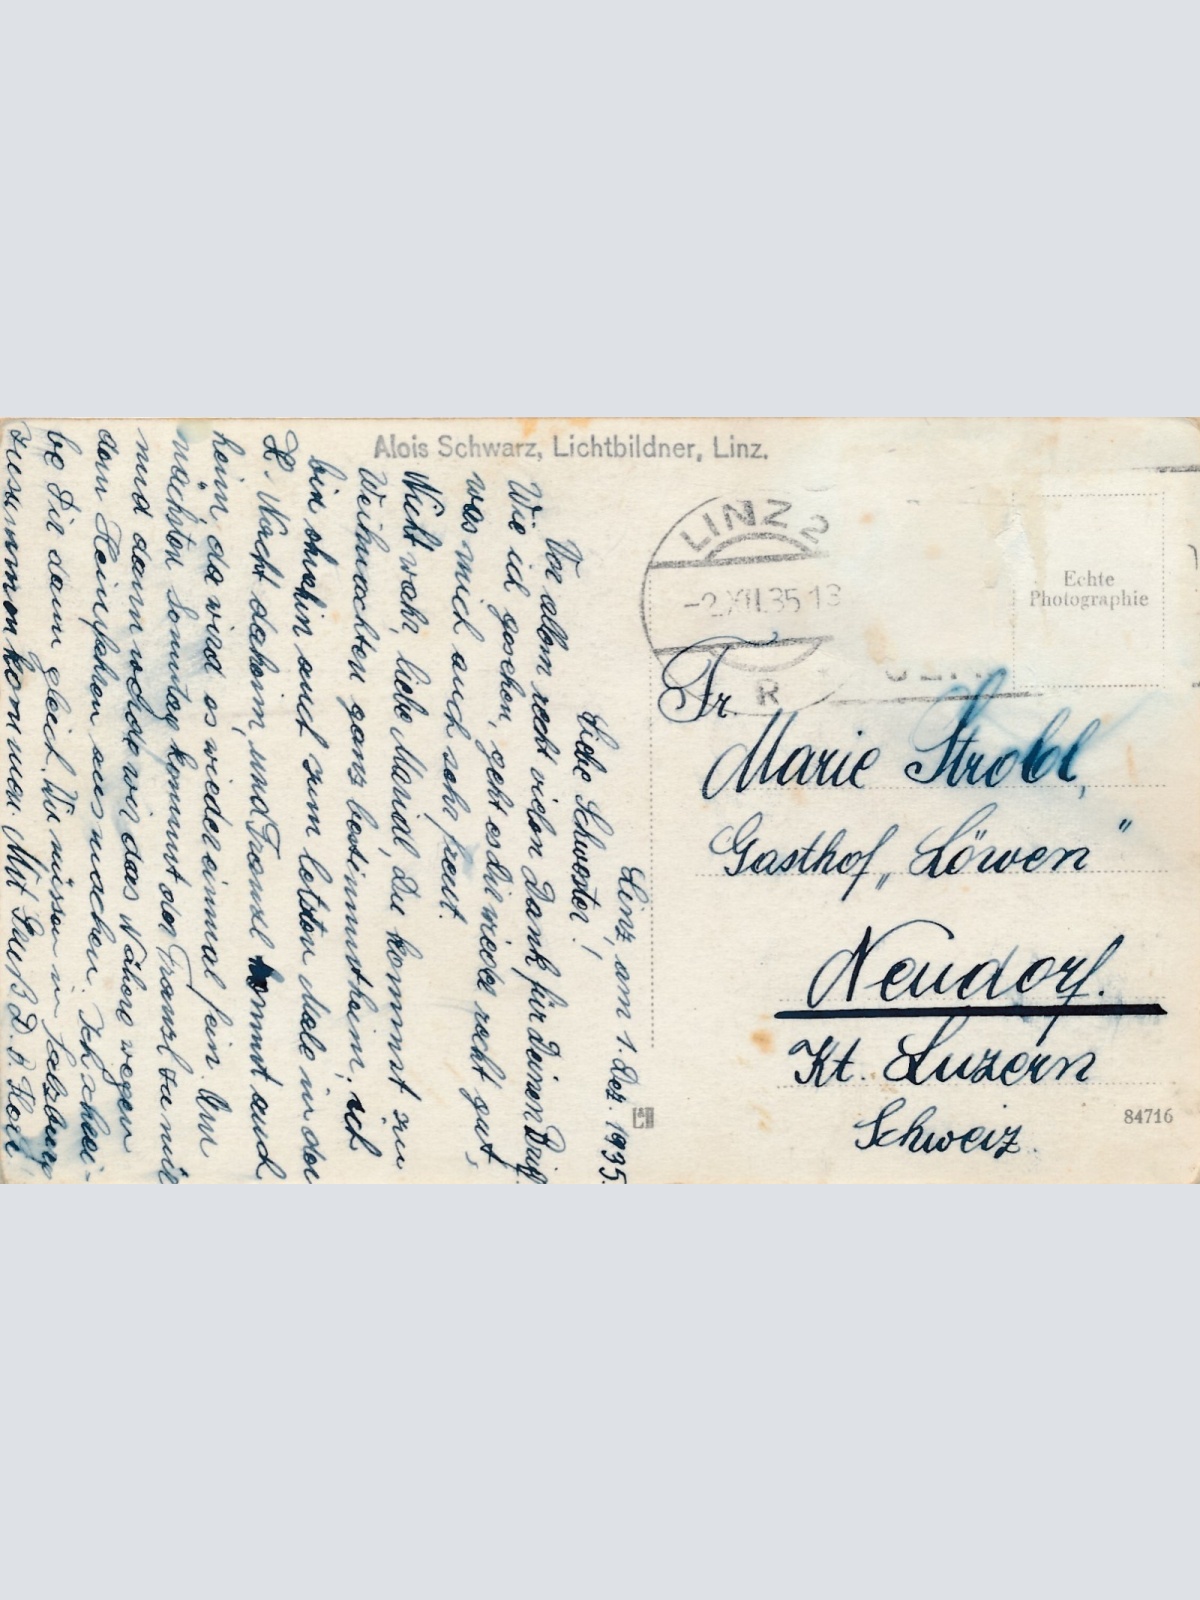 Alois Schwarz, Lichtbildner, Linz.
Linz, am 1. Dez. 1935.
Liebe Schwester!
Vor allem recht vielen Dank für Deinen Brief.
Wie ich gesehen, geht es Dir wieder recht gut,
was mich auch sehr freut.
Nicht wahr, liebe Mariedl, Du kommst zu
Weihnachten ganz bestimmt heim, ich
bin ohnehin auch zum letzten Male in der
Hl. Nacht daheim, und Franzl kommt auch
heim da wird es wieder einmal fein. Am
nächsten Sonntag kommt der Franzl zu mir
und dann werden wir das Nähere wegen
dem Heimfahren ausmachen. Ich schrei-
be Dir dann gleich. Wir müssen in Salzburg
zusammenkommen. Mit Gruß D. B.
LINZ 2
-2.XII.35 13
R
Echte
Photographie
Fr.
Marie Strobl,
Gasthof „Löwen"
Neudorf.
Kt. Luzern
Schweiz.
84716